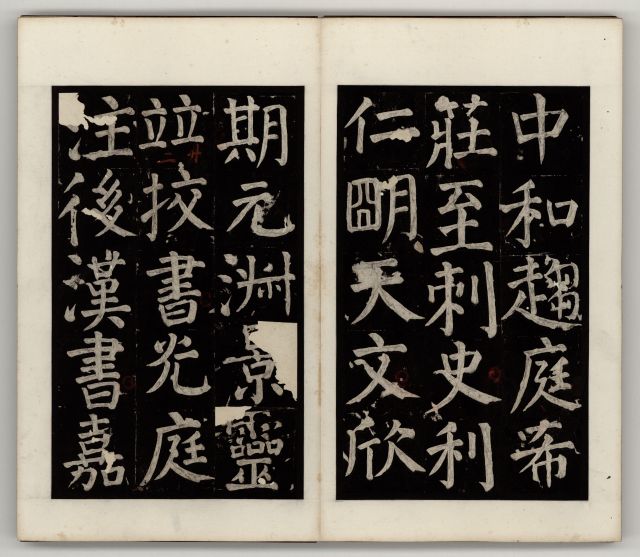 中和趨庭芾
莊至刺史利
仁朙天文欣
期元洲景靈
竝挍書光庭
注後漢書嘉